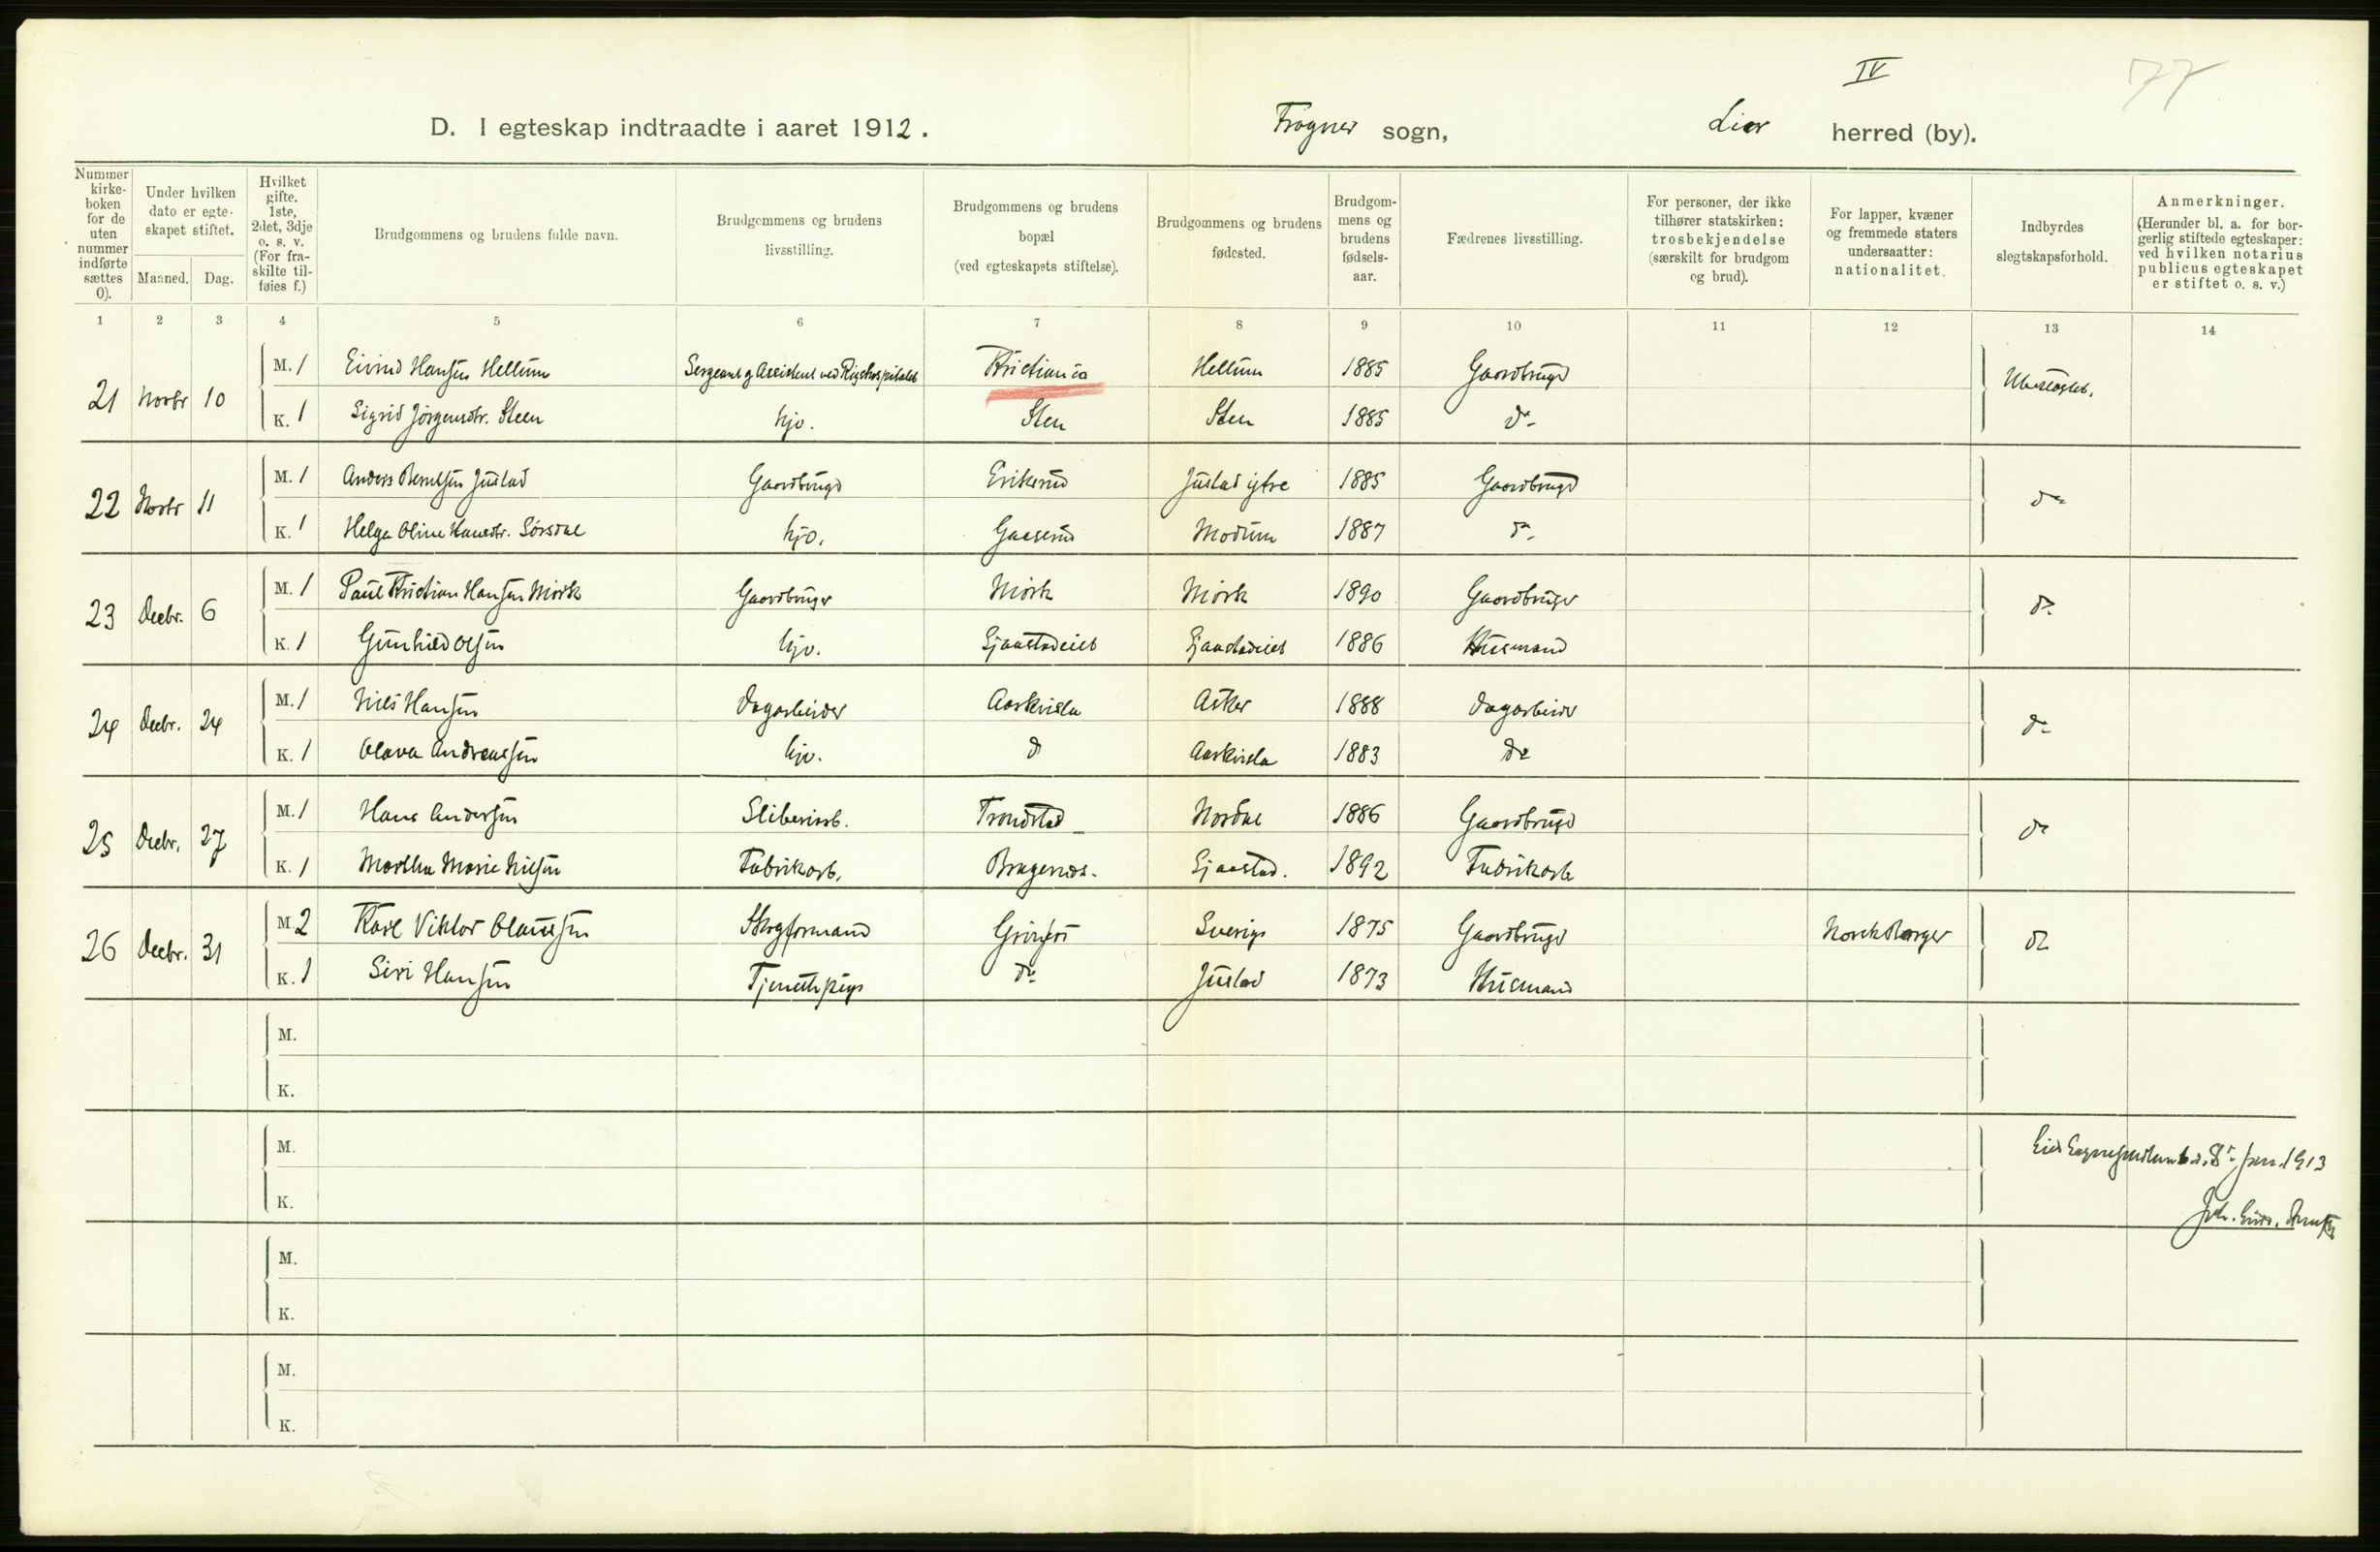 IV
77
D. I egteskap indtraadte i aaret 1912.
Frogner sogn, Lier herred (by).
Nummer kirkeboken for de uten nummer indførte sættes 0).
Under hvilken dato er egteskapet stiftet.
Maaned. Dag.
Hvilket gifte. 1ste, 2det, 3dje o. s. v. (For fraskilte tilføies f.)
Brudgommens og brudens fulde navn.
Brudgommens og brudens livsstilling.
Brudgommens og brudens bopæl (ved egteskapets stiftelse).
Brudgommens og brudens fødested.
Brudgommens og brudens fødselsaar.
Fædrenes livsstilling.
For personer, der ikke tilhører statskirken: trosbekjendelse (særskilt for brudgom og brud).
For lapper, kvæner og fremmede staters undersaatter: nationalitet.
Indbyrdes slegtskapsforhold.
Anmerkninger. (Herunder bl. a. for borgerlig stiftede egteskaper: ved hvilken notarius publicus egteskapet er stiftet o. s. v.)
1 2 3 4 5 6 7 8 9 10 11 12 13 14
21 Novbr 10 M. 1 Eivind Hansen Hellum Sergeant og Assistent ved Rigshospitalet Kristiania Hellum 1885 Gaardbruger Ubeslægtet.
K. 1 Sigrid Jörgensdtr. Steen hjv. Sten Sten 1885 do
22 Novbr 11 M. 1 Anders Berntsen Justad Gaardbruger Eriksrud Justad ytre 1885 Gaardbruger do
K. 1 Helga Oline Hansdtr. Sørsdal hjv. Gaaserud Modum 1887 do
23 Decbr. 6 M. 1 Paul Kristian Hansen Mörk Gaardbruger Mörk Mörk 1890 Gaardbruger do
K. 1 Gunhild Olsen hjv. Sjaastadeiet Sjaastadeiet 1886 Husmand
24 Decbr. 24 M. 1 Nils Hansen Dagarbeider Aaskvisla Asker 1888 Dagarbeider do
K. 1 Olava Andreassen hjv. do Aaskvisla 1883 do
25 Decbr. 27 M. 1 Hans Andersen Sliberiarb. Trondstad Nordal 1886 Gaardbruger do
K. 1 Martha Marie Nilsen Fabrikarb. Bragernæs. Sjaastad. 1892 Fabrikarb
26 Decbr. 31 M. 2 Karl Viktor Claussen Skogformand Grönsjö Sverige 1875 Gaardbruger Norsk Borger do
K. 1 Siri Hansen Tjenestepige do Justad 1873 Husmand
M.
K.
M. 8 Jan. 1913
K. Joh.
M.
K.
M.
K.